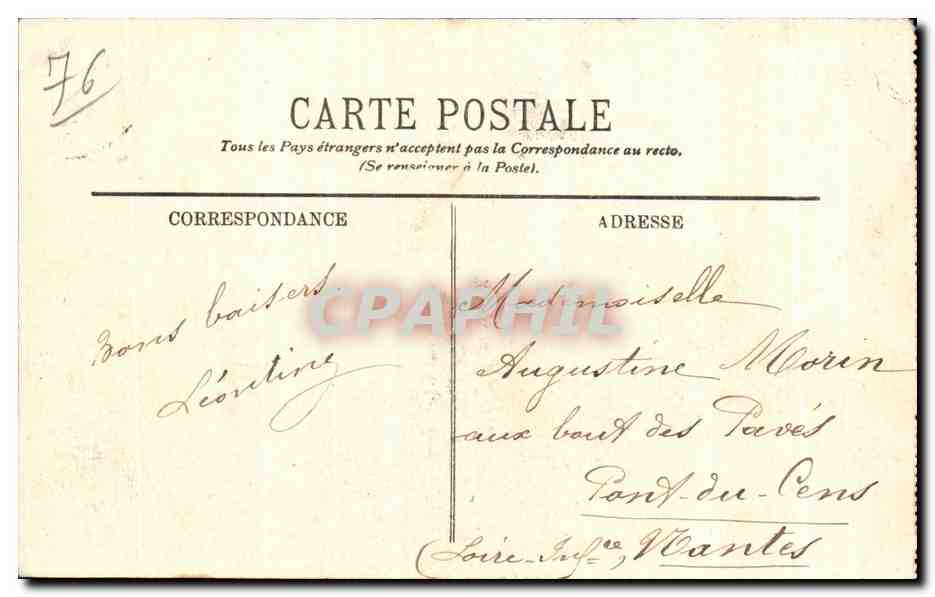 76
CARTE POSTALE
Tous les Pays étrangers n'acceptent pas la Correspondance au recto.
(Se renseigner à la Poste).
CORRESPONDANCE
Bons baisers
Léontine
ADRESSE
Mademoiselle
Augustine Morin
aux bout des Pavés
Pont-du-Cens
(Loire-Infce, Nantes
CPAPHIL